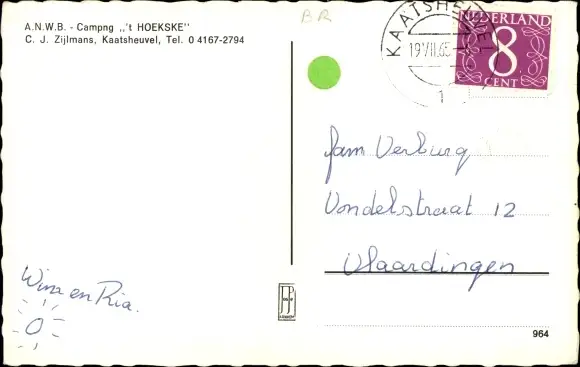 A.N.W.B. - Campng ,,'t HOEKSKE"
C. J. Zijlmans, Kaatsheuvel, Tel. 0 4167-2794
BR
KAATSHEUVEL
19 VII 65
1
NEDERLAND
8
CENT
fam Verburg
Vondelstraat 12
Vlaardingen
Wim en Ria.
964